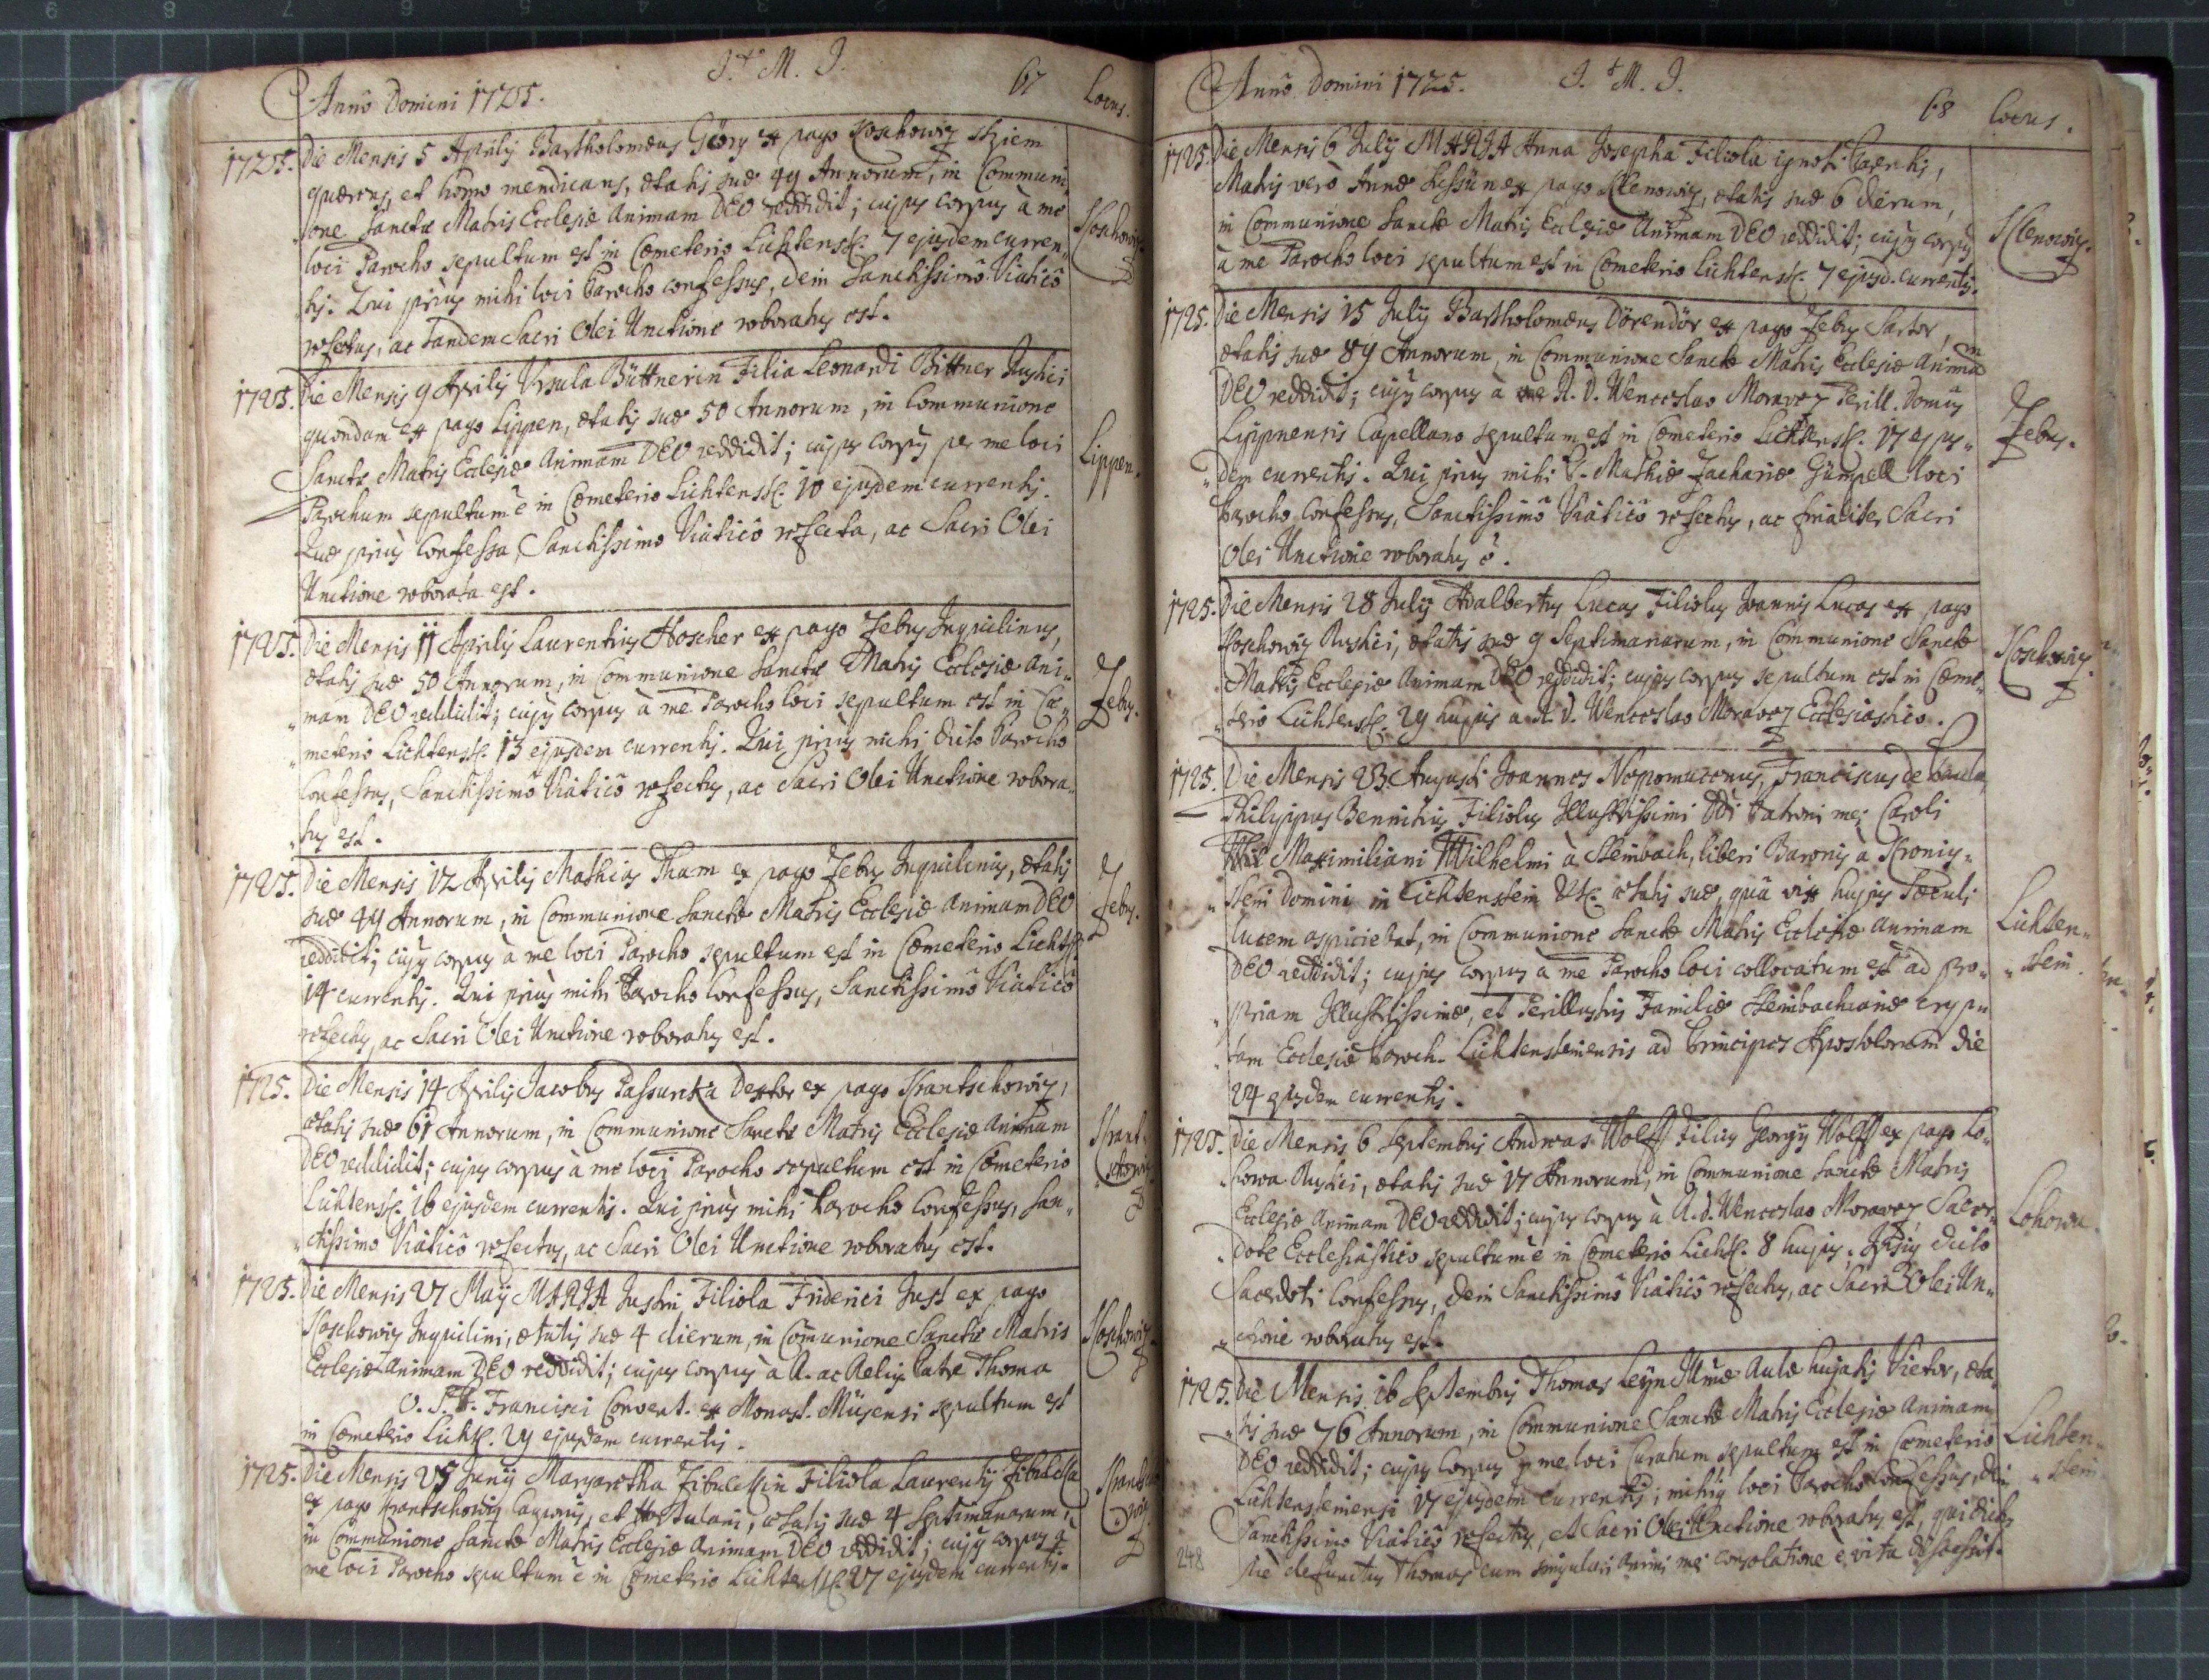 J. † M. J.
Anno Domini 1725.
67
Locus.
1725. Die Mensis 5 Aprilis Bartholomæus Göry ex pago Koschowiz
quærens, et homo mendicans, ætatis suæ 49 Annorum, in Communi„
„one Sanctæ Matris Ecclesiæ Animam DEO reddidit; cujus corpus à me
loci Parocho sepultum est in Cœmeterio Lichtenst. 7 ejusdem curren„
„tis. Qui priùs mihi loci Parocho confessus, dein Sanctissimô Viaticô
refectus, ac tandem Sacri Olei Unctione roboratus est.
Koschowiz.
1725. Die Mensis 9 Aprilis Ursula Büttnerin Filia Leonardi Bittner Rustici
quondam ex pago Lippen, ætatis suæ 50 Annorum, in Communione
Sanctæ Matris Ecclesiæ Animam DEO reddidit; cujus corpus per me loci
Parochum sepultum ē in Cœmeterio Lichtenst. 10 ejusdem currentis.
Quæ priùs Confessa, Sanctissimo Viaticô refecta, ac Sacri Olei
Unctione roborata est.
Lippen.
1725. Die Mensis 11 Aprilis Laurentius Hoscher ex pago Zebus Inquilinus,
ætatis suæ 50 Annorum, in Communione Sanctæ Matris Ecclesiæ Ani„
„mam DEO reddidit; cujus corpus à me Parocho loci sepultum est in Cœ„
„meterio Lichtenst. 13 ejusdem currentis. Qui priùs mihi dicto Parocho
Confessus, Sanctissimô Viaticô refectus, ac Sacri Olei Unctione robora„
„tus est.
Zebus.
1725. Die Mensis 12 Aprilis Mathias Tham ex pago Zebus Inquilinus, ætatis
suæ 44 Annorum, in Communione Sanctæ Matris Ecclesiæ Animam DEO
reddidit; cujus corpus à me loci Parocho sepultum est in Cœmeterio Lichtst.
14 currentis. Qui priùs mihi Parocho Confessus, Sanctissimô Viaticô
refectus, ac Sacri Olei Unctione roboratus est.
Zebus.
1725. Die Mensis 14 Aprilis Jacobus Passurka Textor ex pago Krantschowiz,
ætatis suæ 61 Annorum, in Communione Sanctæ Matris Ecclesiæ Animam
DEO reddidit; cujus corpus à me loci Parocho sepultum est in Cœmeterio
Lichtenst. 16 ejusdem currentis. Qui priùs mihi Parocho Confessus, San„
„ctissimo Viaticô refectus, ac Sacri Olei Unctione roboratus est.
Krant„
„schowiz
1725. Die Mensis 27 Maÿ MARIA Justin Filiola Friderici Just ex pago
Koschowiz Inquilini, ætatis suæ 4 dierum, in Comunione Sanctæ Matris
Ecclesiæ Animam DEO reddidit; cujus corpus à R. ac Relig. Patre Thoma
O. S. P. Francisci Convent. ex Monast. Müsensi sepultum est
in Cœmeterio Lichst. 29 ejusdem currentis.
Koschowiz.
1725. Die Mensis 25 Junÿ Margaretha Zibulckin Filiola Laurentÿ Zibulcka
ex pago Krantschowiz et ætatis suæ 4 Septimanarum,
in Communione Sanctæ Matris Ecclesiæ Animam DEO reddidit; cujus corpus à
me loci Parocho sepultum ē in Cœmeterio Lichtenst. 27 ejusdem currentis.
J. † M. J.
Anno Domini 1725.
68
Locus.
1725. Die Mensis 6 Julÿ MARIA Anna Josepha Filiola ignoti Parentis,
Matris verò Annæ ex pago Klenowiz, ætatis suæ 6 dierum,
in Communione Sanctæ Matris Ecclesiæ Animam DEO reddidit; cujus corpus
à me Parocho loci sepultum est in Cœmeterio Lichtenst. 7 ejusd. currentis.
Klenowiz.
1725. Die Mensis 15 Julÿ Bartholomæus Dörendör ex pago Zebus Sartor,
ætatis suæ 89 Annorum, in Communione Sanctæ Matris Ecclesiæ Animam
DEO reddidit; cujus corpus à R. D. Wenceslao Moravez Perill. Domûs
Lippnensis Capellano sepultum est in Cœmeterio Lichtenst. 17 ejus„
„dem currentis. Qui priùs mihi P. Mathiæ Zachariæ Gümpell loci
Parocho Confessus, Sanctissimô Viaticô refectus, ac finaliter Sacri
Olei Unctione roboratus ē.
Zebus.
1725. Die Mensis 28 Julÿ Adalbertus Lucas Filiolus Joannis Lucas ex pago
Koschowiz Rustici, ætatis suæ 9 Septimanarum, in Communione Sanctæ
Matris Ecclesiæ Animam DEO reddidit; cujus corpus sepultum est in Cœme„
„terio Lichtenst. 29 hujus à R. D. Wenceslao Moravez Ecclesiastico.
Koschowiz.
1725. Die Mensis 23 Augusti Joannes Nepomucenus, Franciscus de Paula,
Philippus Bennitius Filiolus Illustrissimi DDi Patroni mei Caroli
Maximiliani Wilhelmi à Steinbach, liberi Baronis à Kronig„
„stein Domini in Lichtenstein &tc. ætatis suæ, quâ vix hujus Sæculi
lucem aspiciebat, in Communione Sanctæ Matris Ecclesiæ Animam
DEO reddidit; cujus Corpus à me Parocho loci collocatum est ad pro„
„priam Illustrissimæ, et Perillustris Familiæ Steinbachianæ cryp„
„tam Ecclesiæ Paroch. Lichtensteinensis ad Principes Apostolorum die
24 ejusdem currentis.
Lichten„
„stein.
1725. Die Mensis 6 Septembris Andreas Wolff Filius Georgÿ Wolff ex pago Lo„
„howa Rustici, ætatis suæ 17 Annorum, in Communione Sanctæ Matris
Ecclesiæ Animam DEO reddidit; cujus corpus à R. D. Wenceslao Moravez Sacer„
„dote Ecclesiastico sepultum ē in Cœmeterio Lichst. 8 hujus. Ipsi dicto
Sacerdoti Confessus, dein Sanctissimô Viaticô refectus, ac Sacri Olei Un„
„ctione roboratus est.
Lohowa.
1725. Die Mensis 16 Septembris Thomas Leÿn Illmæ Aulæ hujatis Vietor, æta„
„tis suæ 76 Annorum, in Communione Sanctæ Matris Ecclesiæ Animam
DEO reddidit; cujus Corpus p me loci Curatum sepultum est in Cœmeterio
Lichtensteinensi 17 ejusdem currentis; loci Parocho Confessus, dein
Sanctissimo Viaticô refectus, et Sacri Olei Unctione roboratus est, qui dictus
piè defunctus Thomas cum singulari animi mei consolatione è vita discessit.
Lichten„
„stein
248